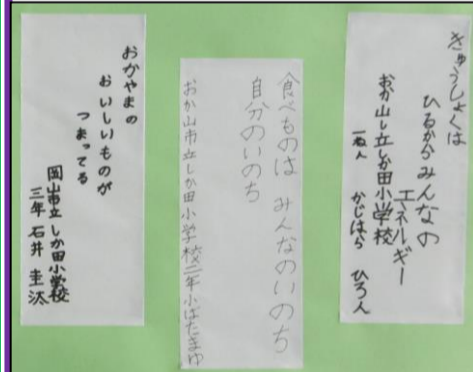 きゅうしょくは
ひるから みんなの
エネルギー
おか山し立しか田小学校
一ねん かじはら ひろん
食べものは みんなのいのち
自分のいのち
おか山市立しか田小学校二年小ばたまゆ
おかやまの
おいしいものが
つまってる
岡山市立しか田小学校
三年 石井 圭汰